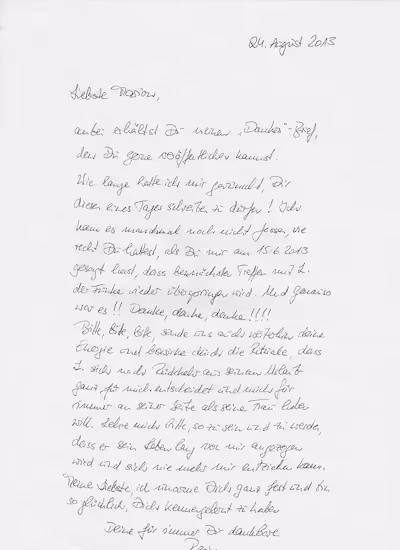 24. August 2013
Liebste Marion,
anbei erhältst Du meinen „Danke"-Brief,
den Du gerne veröffentlichen kannst.
Wie lange hatte ich mir gewünscht, Dir
diesen eines Tages schreiben zu dürfen! Ich
kann es manchmal noch nicht fassen, wie
recht Du hattest, als Du mir am 15.6.2013
gesagt hast, dass beim nächsten Treffen mit J.
der Funke wieder überspringen wird. Und genau so
war es!! Danke, danke, danke!!!!
Bitte, bitte, bitte, sende uns auch weiterhin deine
Energie und bewirke durch die Rituale, dass
J. sich nach Rückkehr aus seinem Urlaub
ganz für mich entscheidet und mich für
immer an seiner Seite als seine Frau haben
will. Lehre mich bitte, so zu sein und zu werden,
dass er sein Leben lang von mir angezogen
wird und sich nie mehr mir entziehen kann.
Meine Liebste, ich umarme Dich ganz fest und bin
so glücklich, Dich kennengelernt zu haben
Deine für immer Dir dankbare